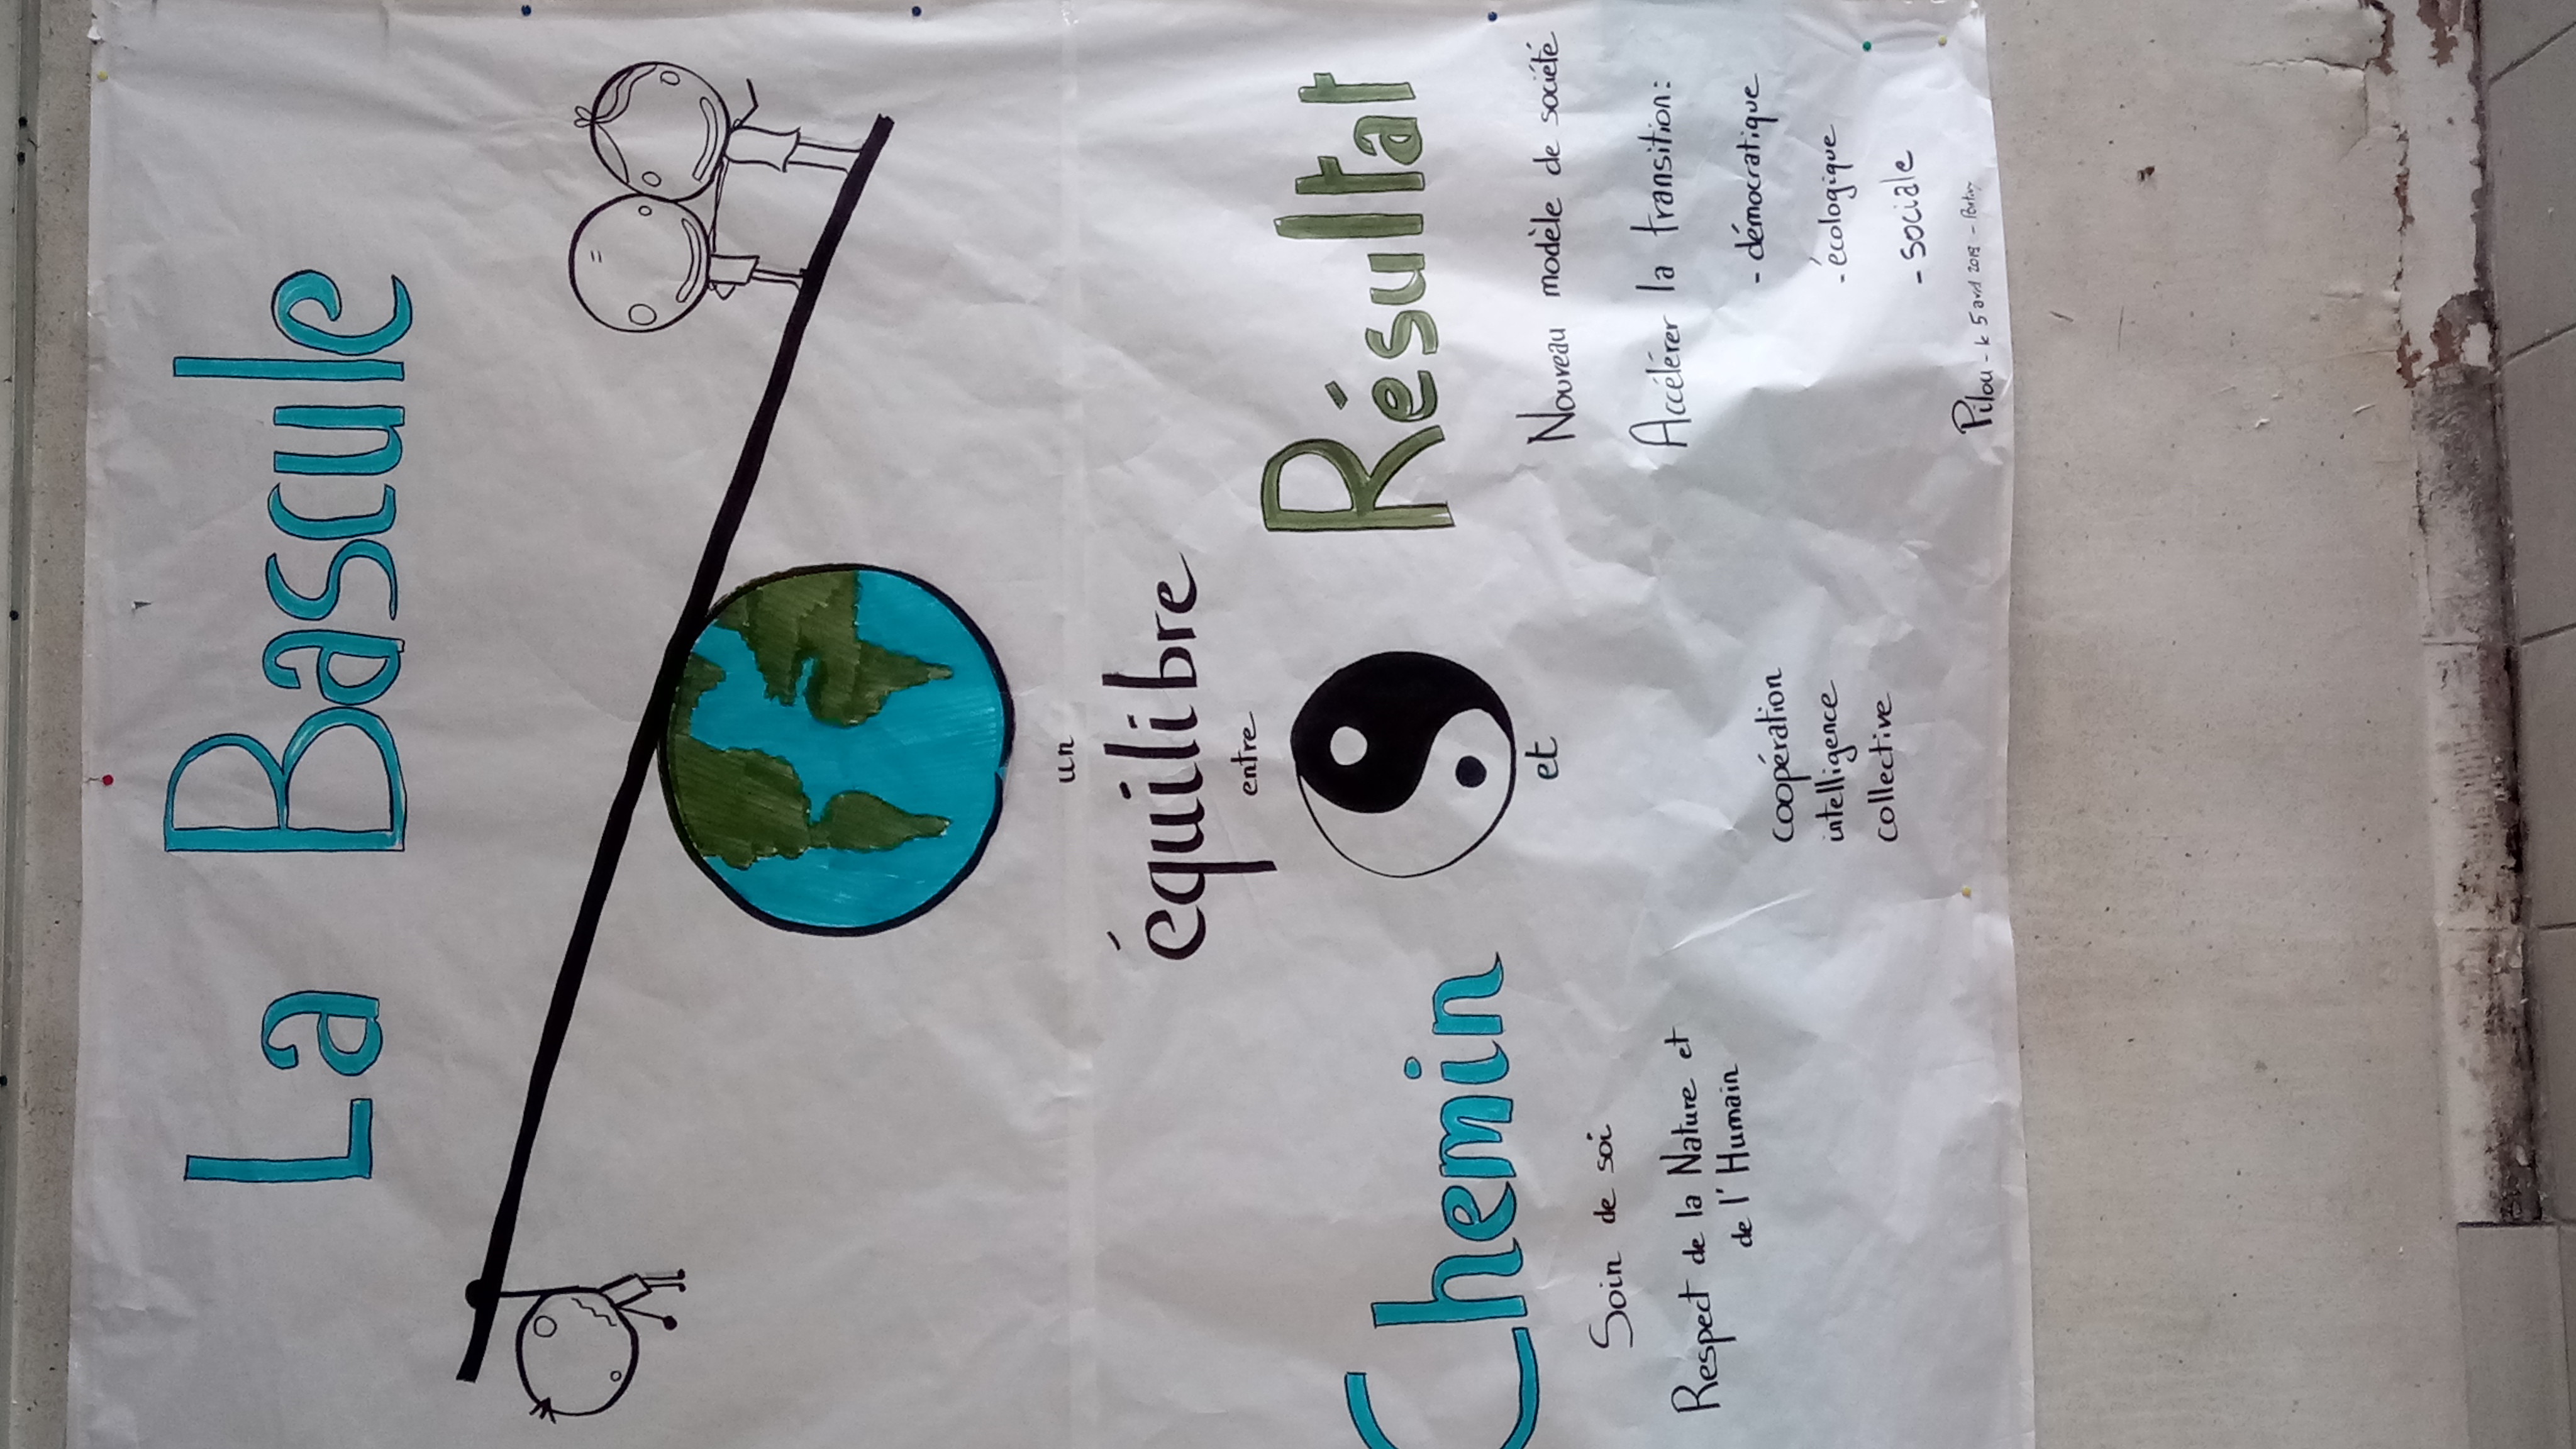 La Bascule
un
équilibre
entre
Chemin
et
Résultat
Soin de soi
Respect de la Nature et
de l'Humain
Coopération
intelligence
collective
Nouveau modèle de société
Accélérer la transition:
- démocratique
- écologique
- sociale
Pilou - le 5 avril 2019 -